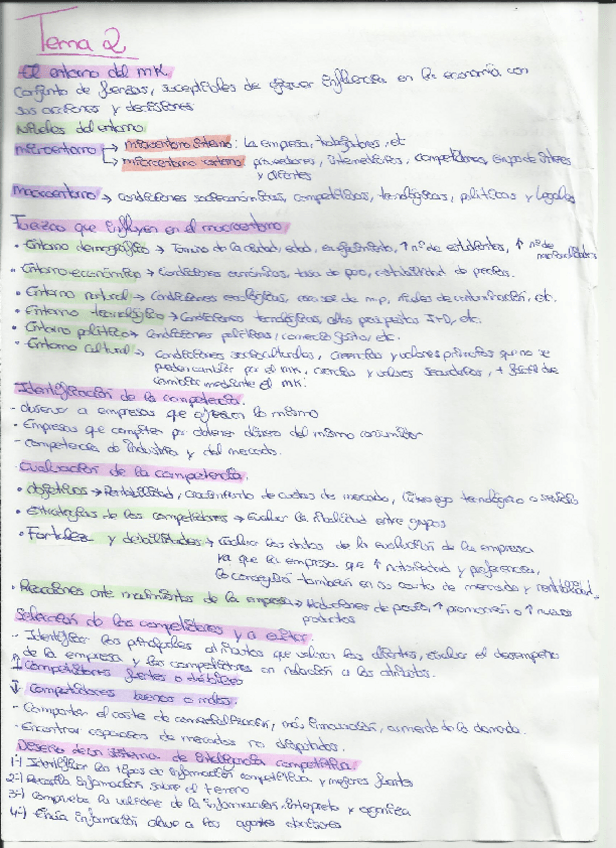 Tema 2
El entorno del MK.
Conjunto de fuerzas, suceptibles de ejercer influencia en la economía con
sus acciones y decisiones
Niveles del entorno
microentorno → microentorno interno: la empresa, trabajadores, etc
→ microentorno externo proveedores, intermediarios, competidores, Grupo de interes
y clientes
Macroentorno → condiciones socioeconómicas, competitivas, tecnológicas, políticas y legales
Fuerzas que influyen en el macroentorno
• Entorno demográfico → Tamaño de la ciudad, edad, envejecimiento, ↑ nº de estudiantes, ↑ nº de
• Entorno económico → Condiciones económicas, tasa de paro, estabilidad de precios.
• Entorno natural → Condiciones ecológicas, escasez de m.p, niveles de contaminación, etc.
• Entorno tecnológico → Condiciones tecnológicas, altos presupuestos I+D, etc.
• Entorno político → Condiciones políticas, comercio justo, etc.
• Entorno cultural → condiciones socioculturales, creencias y valores primarios que no se
pueden cambiar por el MK, creencias y valores secundarios, + fácil de
cambiar mediante el MK.
Identificación de la competencia.
- observar a empresas que ofrecen lo mismo
- Empresas que compiten por obtener dinero del mismo consumidor
- competencia de industria y del mercado.
Evaluación de la competencia.
• objetivos → Rentabilidad, crecimiento de cuotas de mercado, liderazgo tecnológico o servicio
• estrategias de los competidores → Evaluar la rivalidad entre grupos
• Fortalezas y debilidades → Evaluar los datos de la evaluación de la empresa
ya que la empresa que ↑ notoriedad y preferencias,
lo conseguirá también en su cuota de mercado y rentabilidad.
• Reacciones ante movimientos de la empresa → reducciones de precio, ↑ promoción o ↑ nuevos
productos
Selección de los competidores y a evitar.
- Identificar los principales atributos que valoran los clientes, evaluar el desempeño
de la empresa y los competidores en relación a los atributos.
↑ Competidores fuertes o débiles
↓ Competidores buenos o malos.
- Comparten el coste de comercialización, más innovación, aumento de la demanda.
- Encontrar espacios de mercados no disputados.
Diseño de un sistema de inteligencia competitiva.
1-) Identificar los tipos de información competitiva y mejores fuentes
2-) Recopila información sobre el terreno
3-) Comprueba la validez de la información, interpreta y organiza
4-) Envía información clave a los agentes decisores